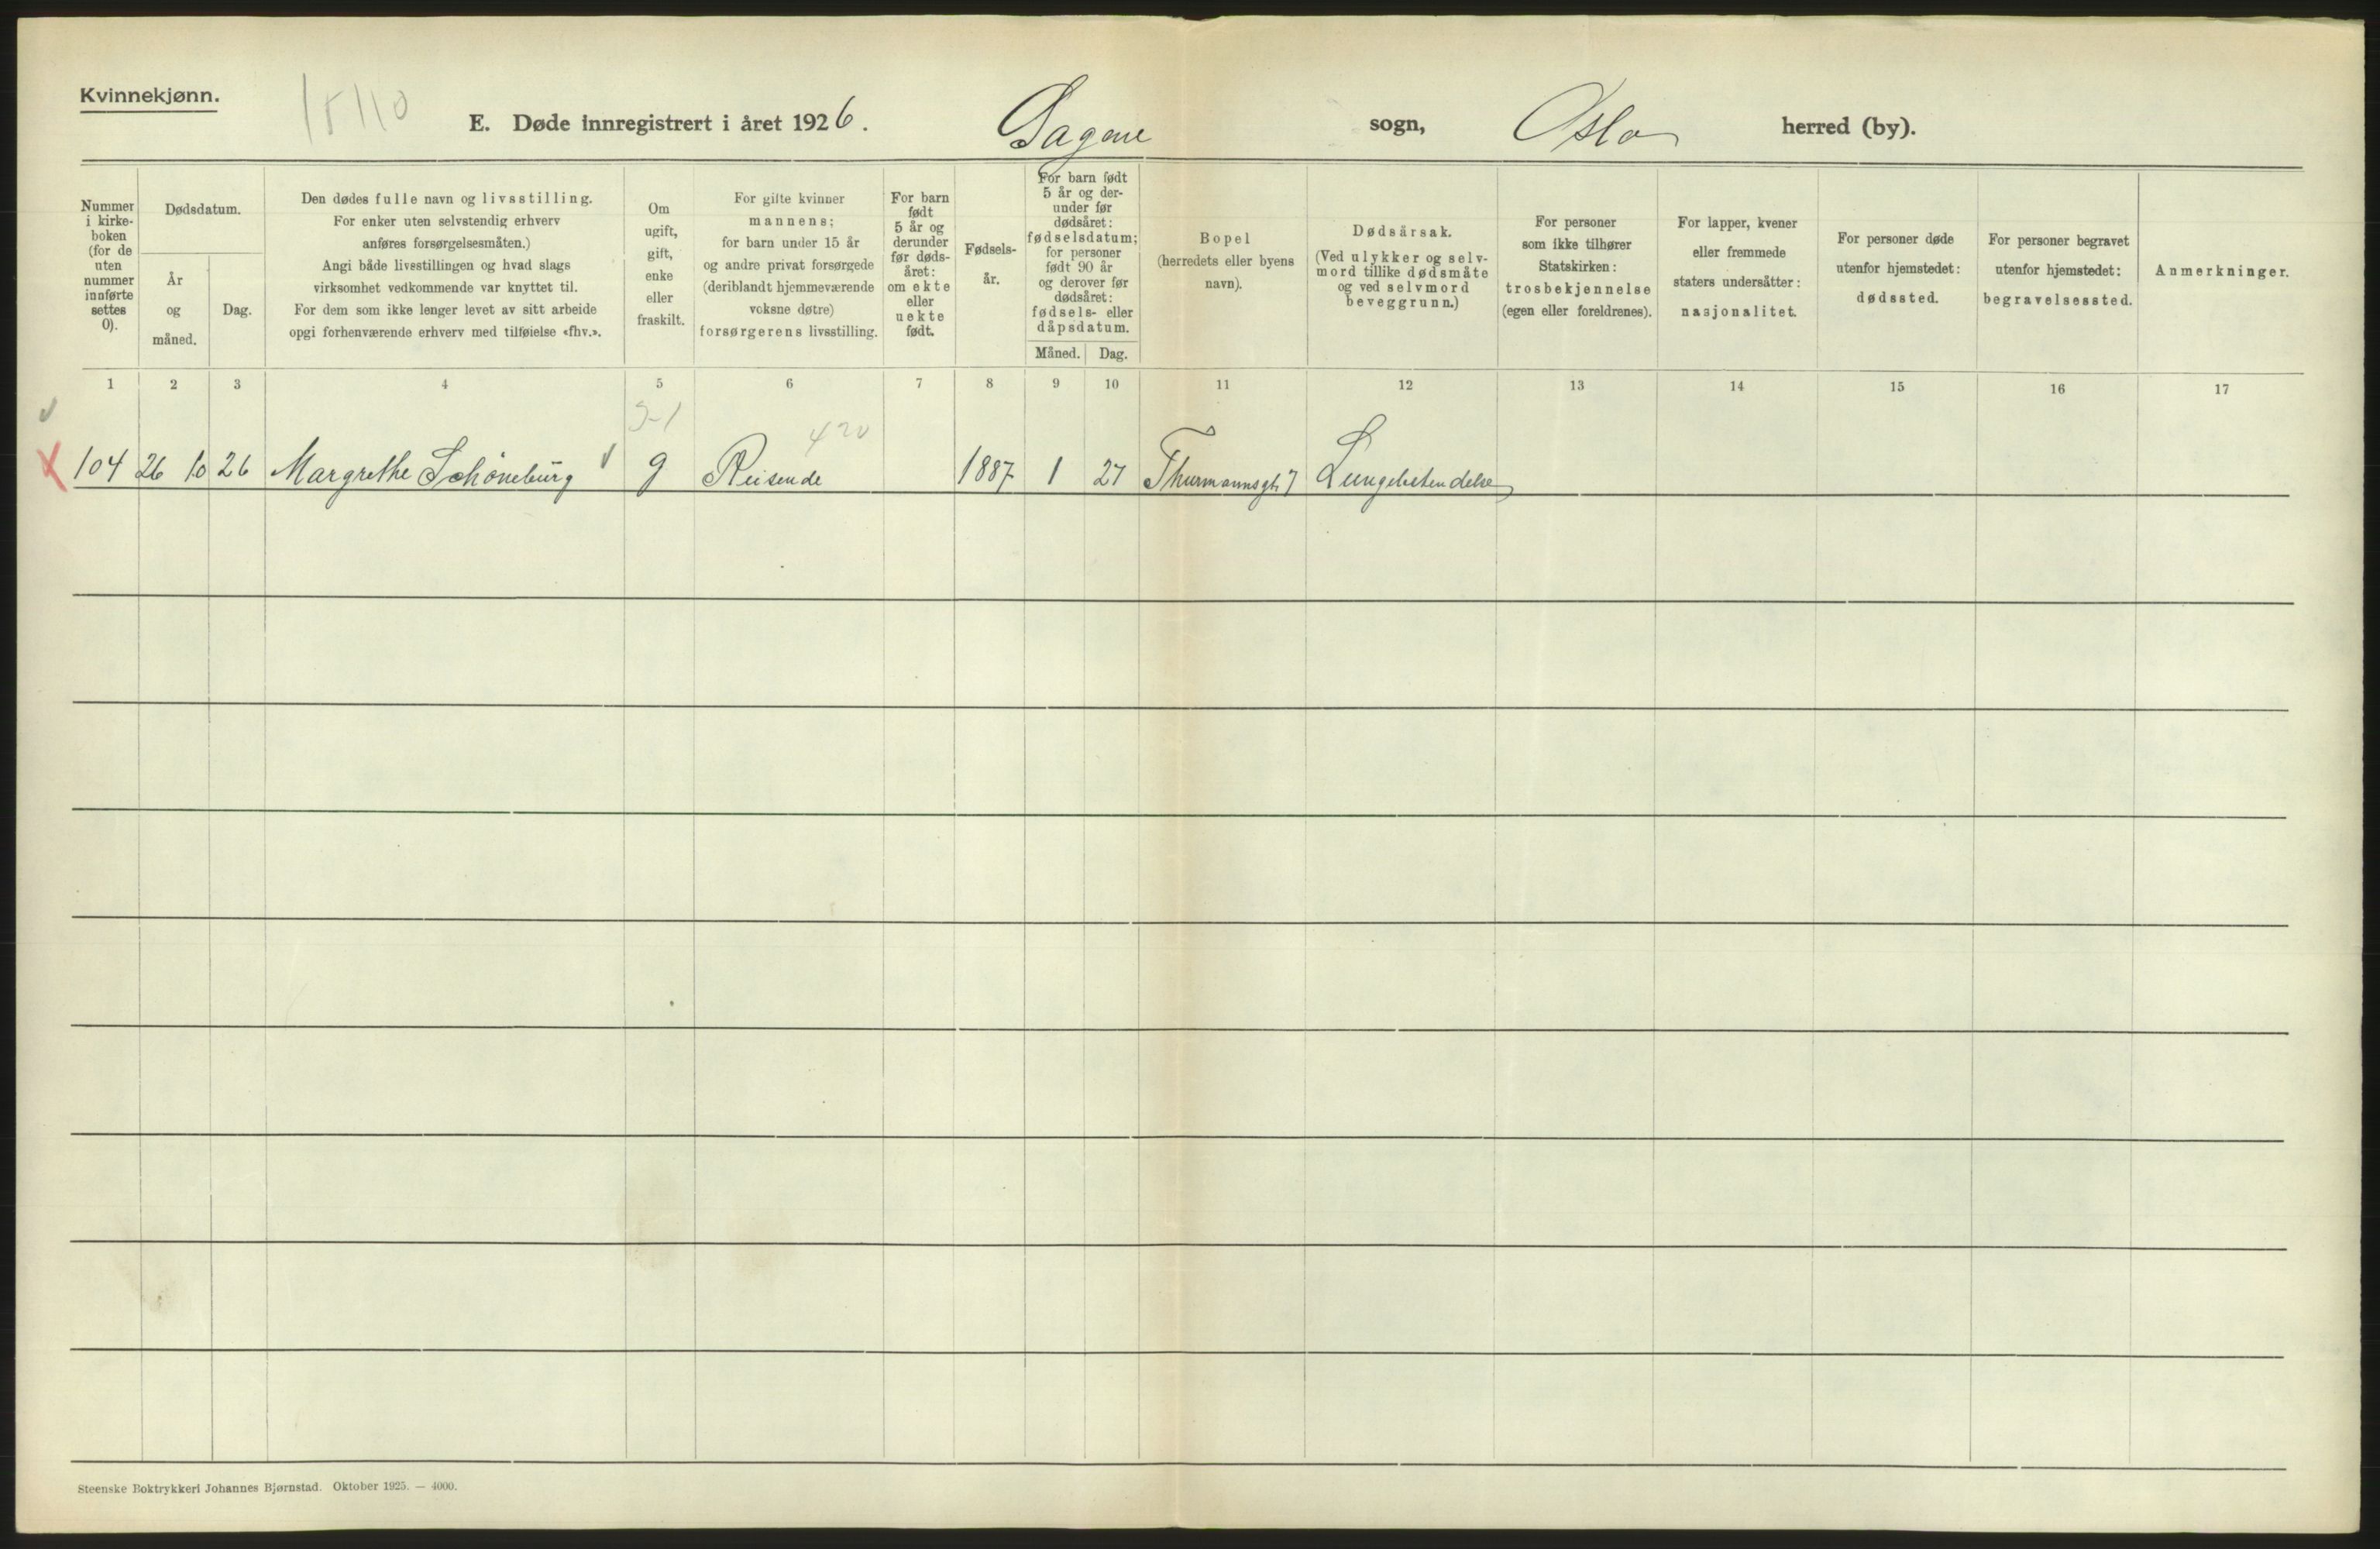 Kvinnekjønn.
E. Døde innregistrert i året 1926. Sagene sogn, Oslo herred (by).
Nummer i kirke-boken (for de uten nummer innførte settes 0).
Dødsdatum.
År og måned.
Dag.
Den dødes fulle navn og livsstilling.
For enker uten selvstendig erhverv
anføres forsørgelsesmåten.)
Angi både livsstillingen og hvad slags
virksomhet vedkommende var knyttet til.
For dem som ikke lenger levet av sitt arbeide
opgi forhenværende erhverv med tilføielse «fhv.».
Om
ugift,
gift,
enke
eller
fraskilt.
For gifte kvinner
mannens;
for barn under 15 år
og andre privat forsørgede
(deriblandt hjemmeværende
voksne døtre)
forsørgerens livsstilling.
For barn
født
5 år og
derunder
før døds-
året:
om ekte
eller
uekte
født.
Fødsels-
år.
For barn født
5 år og der-
under før
dødsåret:
fødselsdatum;
for personer
født 90 år
og derover før
dødsåret:
fødsels- eller
dåpsdatum.
Måned. Dag.
Bopel
(herredets eller byens
navn).
Dødsårsak.
(Ved ulykker og selv-
mord tillike dødsmåte
og ved selvmord
beveggrunn.)
For personer
som ikke tilhører
Statskirken:
trosbekjennelse
(egen eller foreldrenes).
For lapper, kvener
eller fremmede
staters undersåtter:
nasjonalitet.
For personer døde
utenfor hjemstedet:
dødssted.
For personer begravet
utenfor hjemstedet:
begravelsessted.
Anmerkninger.
1 2 3 4 5 6 7 8 9 10 11 12 13 14 15 16 17
420
104 26 10 26 Margrethe Schöneburg g Reisende 1887 1 27 Thurmannsgt. 7 Lungebetendelse
Steenske Boktrykkeri Johannes Bjørnstad. Oktober 1925. — 4000.